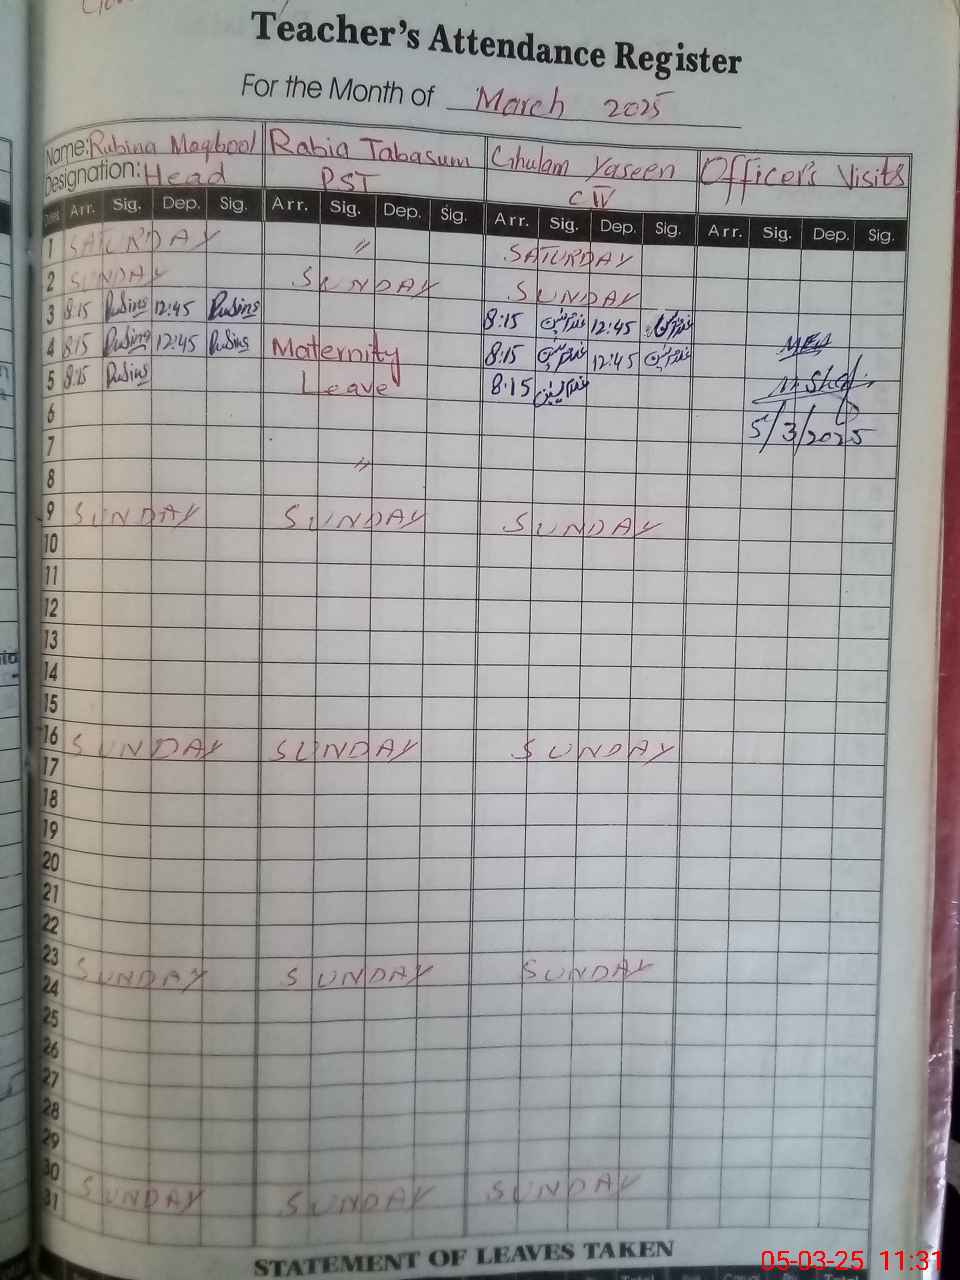 Teacher's Attendance Register
For the Month of March 2025
Name: Rubina Maqbool Rabia Tabasum Ghulam Yaseen Officer's Visits
Designation: Head PST C IV
Arr. Sig. Dep. Sig. Arr. Sig. Dep. Sig. Arr. Sig. Dep. Sig. Arr. Sig. Dep. Sig.
1 SATURDAY 〃 SATURDAY
2 SUNDAY SUNDAY SUNDAY
3 8:15 Rubina 12:45 Rubina 8:15 12:45
4 8:15 Rubina 12:45 Rubina Maternity 8:15 12:45
5 8:15 Rubina Leave 8:15
6 5/3/2025
7
8 〃
9 SUNDAY SUNDAY SUNDAY
10
11
12
13
14
15
16 SUNDAY SUNDAY SUNDAY
17
18
19
20
21
22
23 SUNDAY SUNDAY SUNDAY
24
25
26
27
28
29
30 SUNDAY SUNDAY SUNDAY
31
STATEMENT OF LEAVES TAKEN
05-03-25 11:31